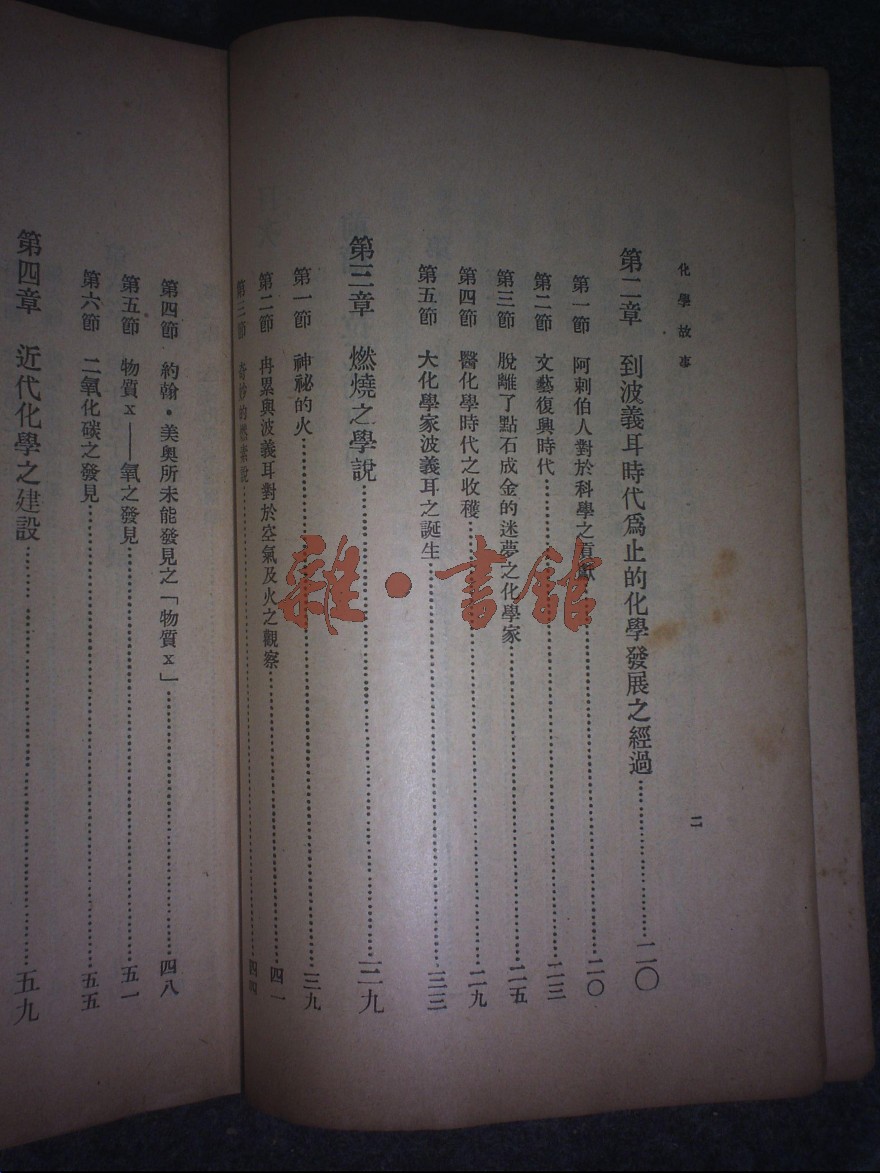 化學故事
二
第二章 到波義耳時代爲止的化學發展之經過……二〇
第一節 阿剌伯人對於科學之貢獻……二〇
第二節 文藝復興時代……二三
第三節 脫離了點石成金的迷夢之化學家……二五
第四節 醫化學時代之收穫……二九
第五節 大化學家波義耳之誕生……三三
第三章 燃燒之學說……三九
第一節 神祕的火……三九
第二節 冉累與波義耳對於空氣及火之觀察……四一
第三節 奇妙的燃素說……四四
第四節 約翰・美奧所未能發見之「物質x」……四八
第五節 物質x——氧之發見……五一
第六節 二氧化碳之發見……五五
第四章 近代化學之建設……五九
雜・書館